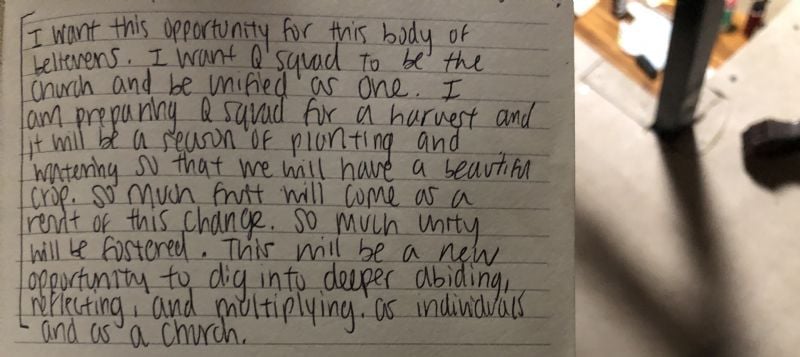 I want this opportunity for this body of
believers. I want Q squad to be the
church and be unified as one. I
am preparing Q squad for a harvest and
it will be a season of planting and
watering so that we will have a beautiful
crop. So much fruit will come as a
result of this change. So much unity
will be fostered. This will be a new
opportunity to dig into deeper abiding,
reflecting, and multiplying. as individuals
and as a church.